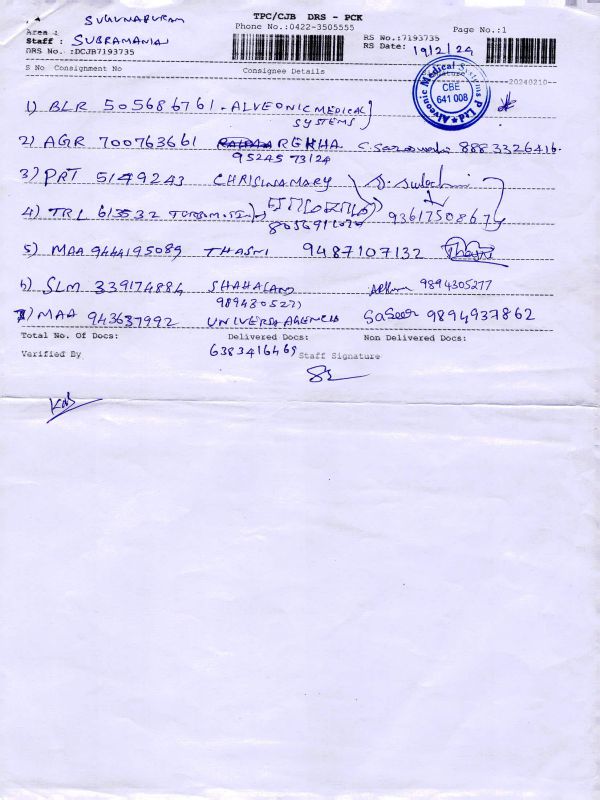 SUGUNAPURAM TPC/CJB DRS - PCK
Area : Phone No.:0422-3505555 Page No.:1
Staff : SUBRAMANIAN RS No.:7193735
DRS No. :DCJB7193735 RS Date: 19/2/24
S No Consignment No Consignee Details Signature
20240210--
Alveonic Medical Systems P Ltd ★ CBE 641 008
1) BLR 505686761 - ALVEONIC MEDICAL
SYSTEMS
2) AGR 700763661 REKHA 8883326416
95245 73124
3) PRT 5149243 CHRISINAMARY
4) TRL 613532 9361750867
5) MAA 9444195089 THASNI 9487107132
6) SLM 339174884 SHAHALAND 9894305277
9894305277
7) MAA 943637992 UNIVERSA AGENCIES 9894937862
Total No. Of Docs: Delivered Docs: Non Delivered Docs:
6383416469
Verified By Staff Signature